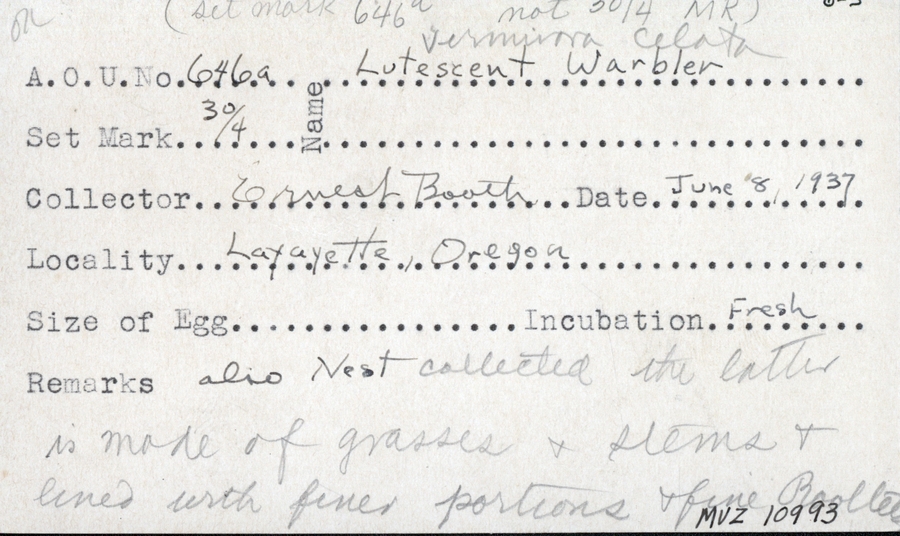 (set mark 646a not 30/4 MR)
Vermivora celata
A.O.U.No. 646a Name Lutescent Warbler
Set Mark 30/4
Collector Ernest Booth Date June 8, 1937
Locality Lafayette, Oregon
Size of Egg Incubation Fresh
Remarks also Nest collected the latter
is made of grasses & stems &
lined with finer portions & fine Rootlets
MVZ 10993